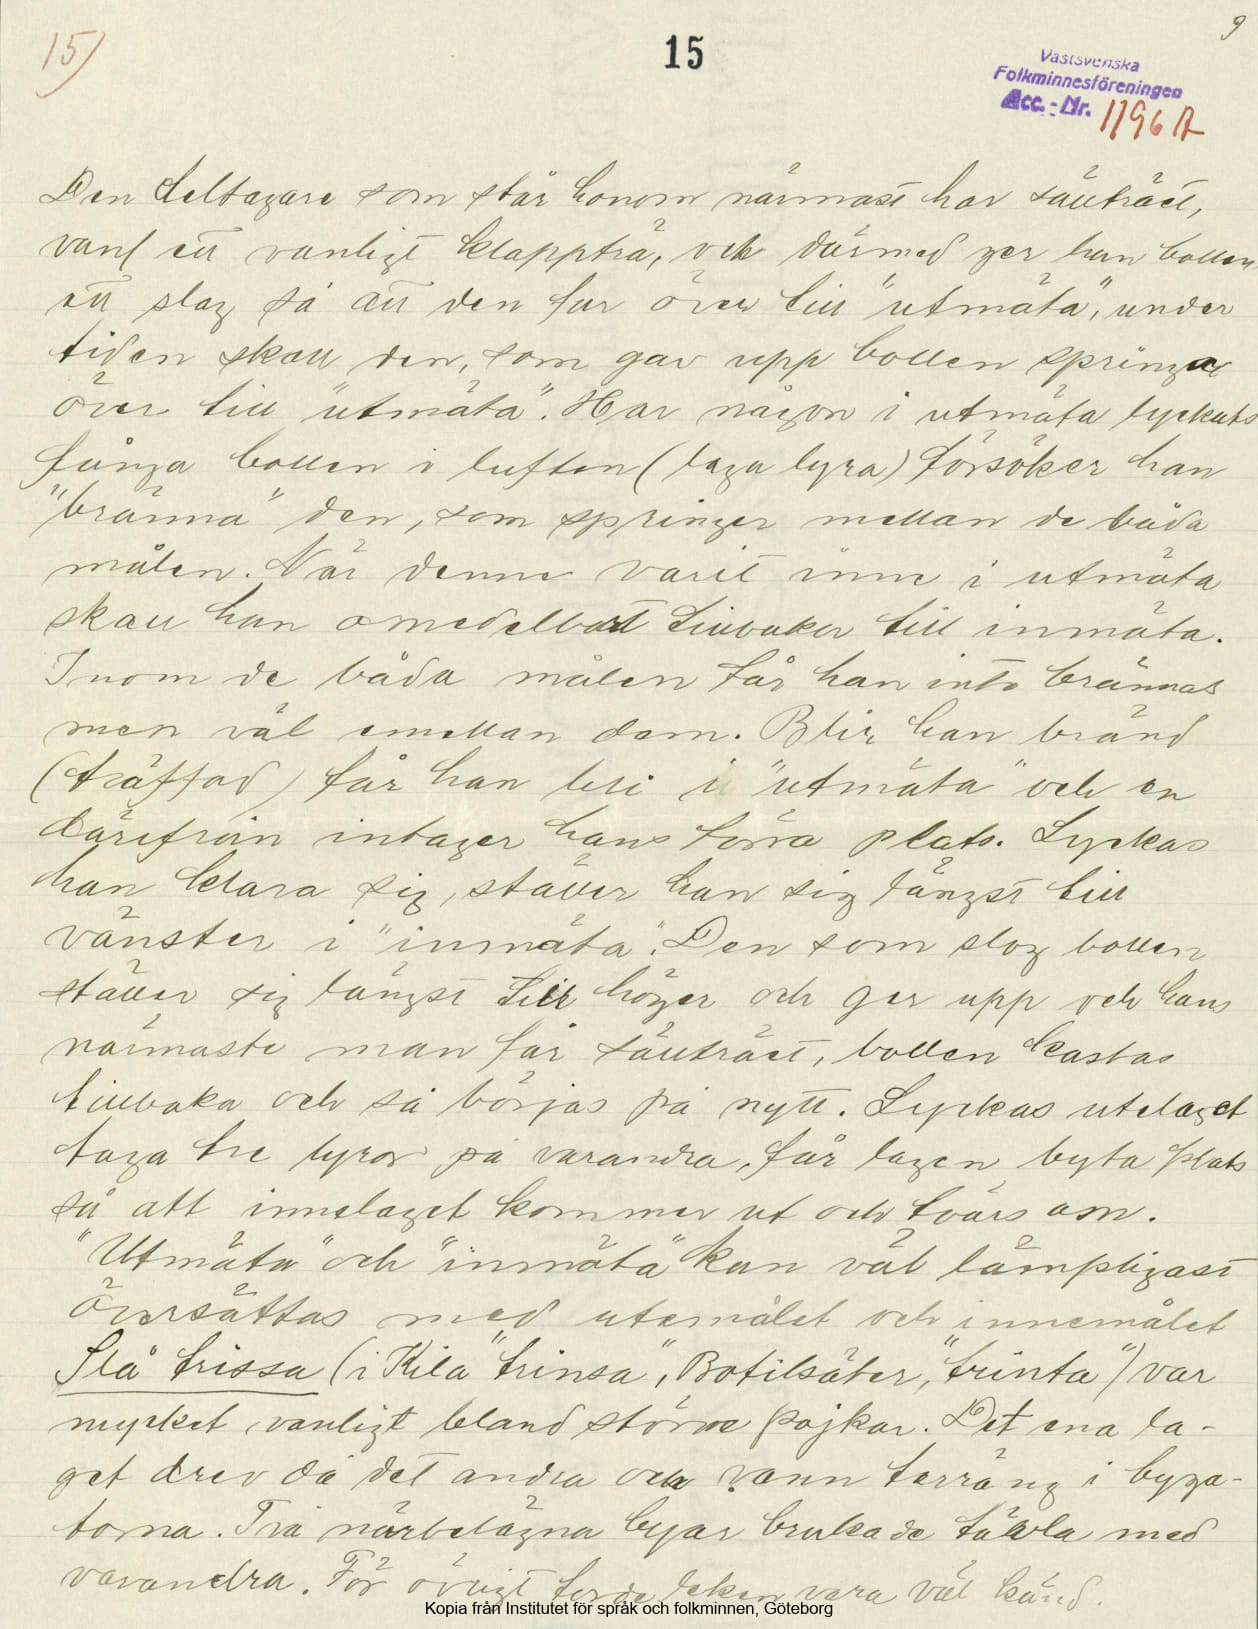 15)
15
9
Västsvenska
Folkminnesföreningen
Acc. - Nr. 1196 A
Den deltagare som står honom närmast har säuträet,
vanl ett vanligt klappträ, och därmed ger han bollen
ett slag så att den far över till "utmäta", under
tiden skall den, som gav upp bollen springa
över till "utmäta". Har någon i utmäta lyckats
fånga bollen i luften (taga lyra) försöker han
"bränna" den, som springer mellan de båda
målen. När denne varit inne i utmäta
skall han omedelbart tillbaka till inmäta.
Inom de båda målen får han inte brännas
men väl emellan dem. Blir han bränd
(träffad) får han bli i "utmäta" och en
därifrån intager hans förra plats. Lyckas
han klara sig, ställer han sig längst till
vänster i "inmäta". Den som slog bollen
ställer sig längst till höger och ger upp och hans
närmaste man får säuträet, bollen kastas
tillbaka och så börjas på nytt. Lyckas utelaget
taga tre lyror på varandra, får lagen byta plats
så att innelaget kommer ut och tvärs om.
"Utmäta" och "inmäta" kan väl lämpligast
översättas med utemålet och innemålet
Slå trissa (i Kila "trinsa", Botilsäter, "trinta") var
mycket vanligt bland större pojkar. Det ena la-
get drev då det andra och vann terräng i byga-
torna. Två närbelägna byar brukade tävla med
varandra. För övrigt torde leken vara väl känd.
Kopia från Institutet för språk och folkminnen, Göteborg